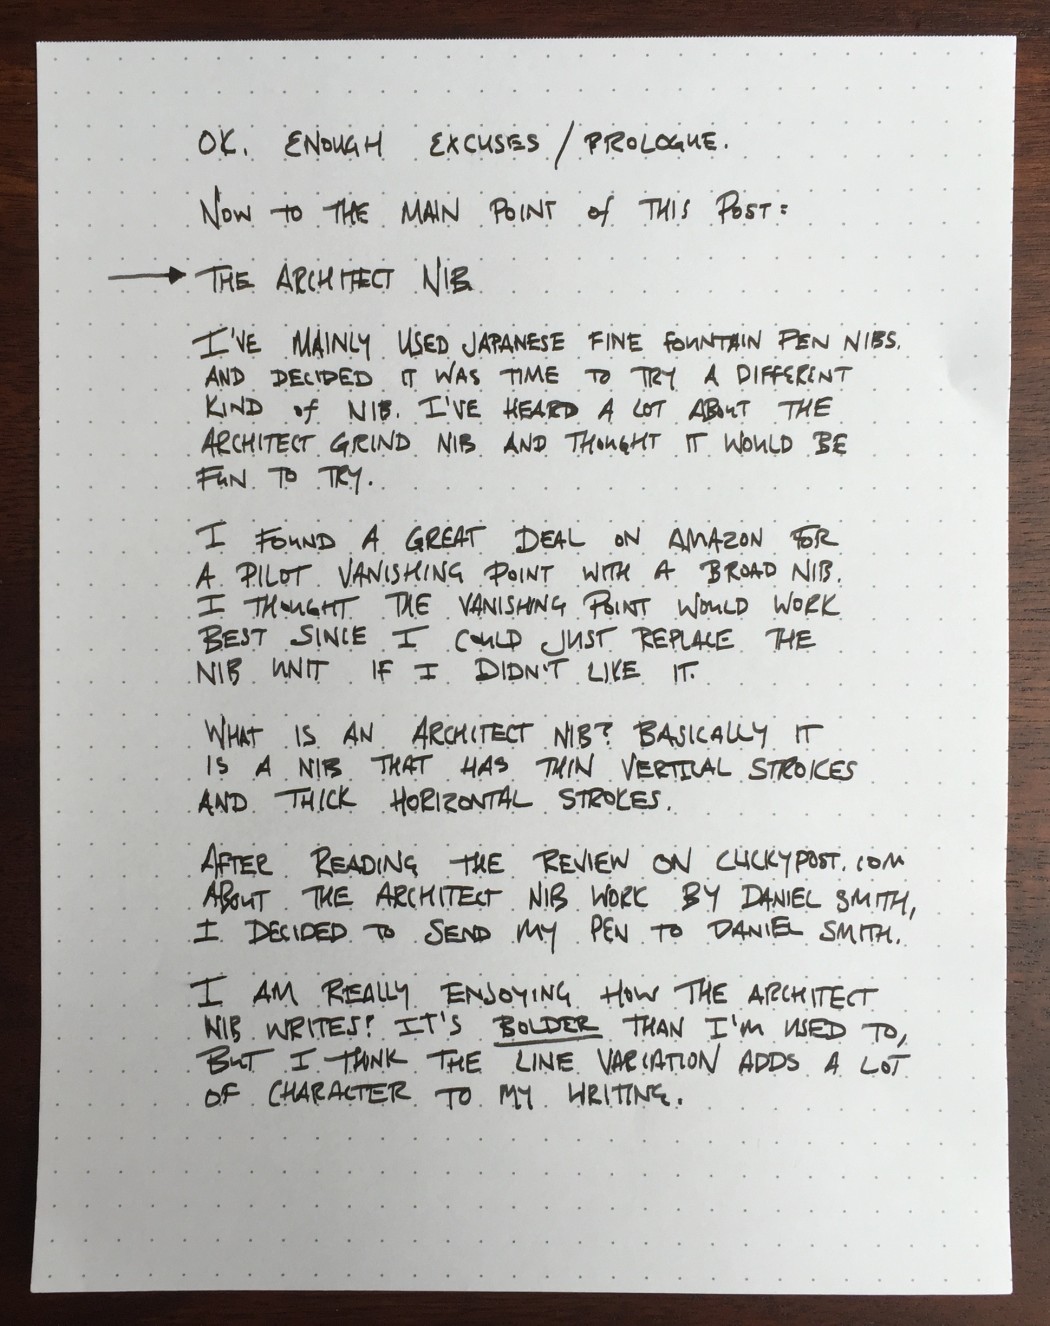 OK. ENOUGH EXCUSES / PROLOGUE.
NOW TO THE MAIN POINT of THIS POST:
→ THE ARCHITECT NIB
I'VE MAINLY USED JAPANESE FINE FOUNTAIN PEN NIBS.
AND DECIDED IT WAS TIME TO TRY A DIFFERENT
KIND of NIB. I'VE HEARD A LOT ABOUT THE
ARCHITECT GRIND NIB AND THOUGHT IT WOULD BE
FUN TO TRY.
I FOUND A GREAT DEAL ON AMAZON FOR
A PILOT VANISHING POINT WITH A BROAD NIB.
I THOUGHT THE VANISHING POINT WOULD WORK
BEST SINCE I COULD JUST REPLACE THE
NIB UNIT IF I DIDN'T LIKE IT.
WHAT IS AN ARCHITECT NIB? BASICALLY IT
IS A NIB THAT HAS THIN VERTICAL STROKES
AND THICK HORIZONTAL STROKES.
AFTER READING THE REVIEW ON CLICKYPOST.COM
ABOUT THE ARCHITECT NIB WORK BY DANIEL SMITH,
I DECIDED TO SEND MY PEN TO DANIEL SMITH.
I AM REALLY ENJOYING HOW THE ARCHITECT
NIB WRITES! IT'S BOLDER THAN I'M USED TO,
BUT I THINK THE LINE VARIATION ADDS A LOT
OF CHARACTER TO MY WRITING.